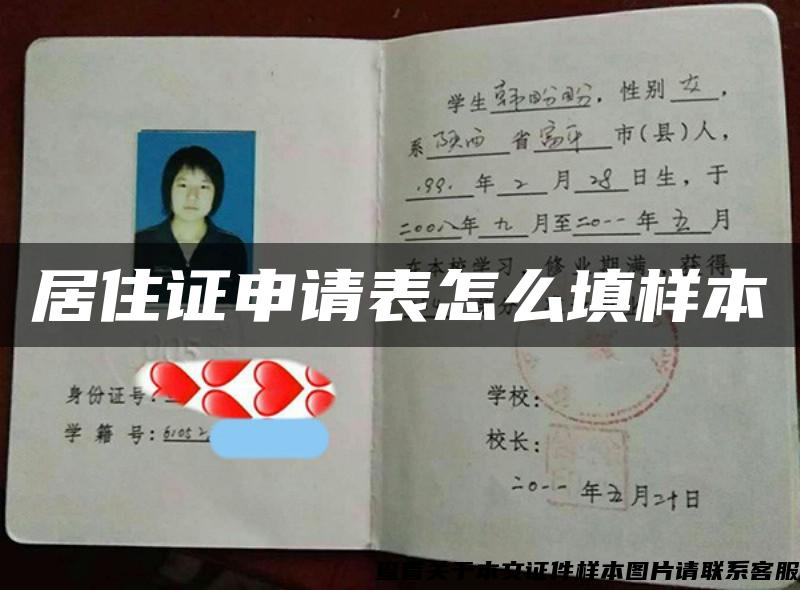 学生韩盼盼，性别女，
系陕西省富平市(县)人，
1991年2月28日生，于
二00八年九月至二0一一年五月
在本校学习，修业期满，获得
居住证申请表怎么填样本
身份证号：
学籍号：61052
学校：
校长：
二0一一年五月二十日
查看关于本文证件样本图片请联系客服